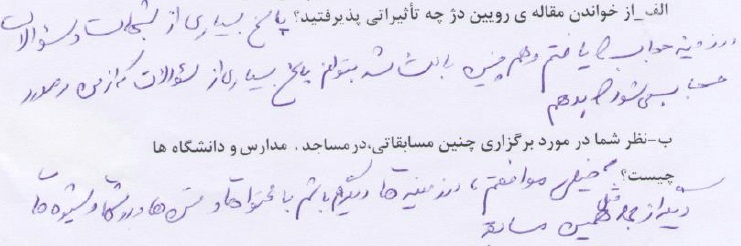 الف_از خواندن مقاله ی رویین دژ چه تأثیراتی پذیرفتید؟ پاسخ بسیاری از شبهات و سؤالات
در زمینه حجاب را یافتم و هم چنین باعث شد بتوانم پاسخ بسیاری از سؤالات که از من در مورد
حجاب می شود را بدهم
ب-نظر شما در مورد برگزاری چنین مسابقاتی،در مساجد، مدارس و دانشگاه ها
چیست؟ خیلی موافقم، در زمینه های دیگر هم باشد با محتواها و متن ها و روشها و شیوه های
دیگر از جمله همین مسابقه